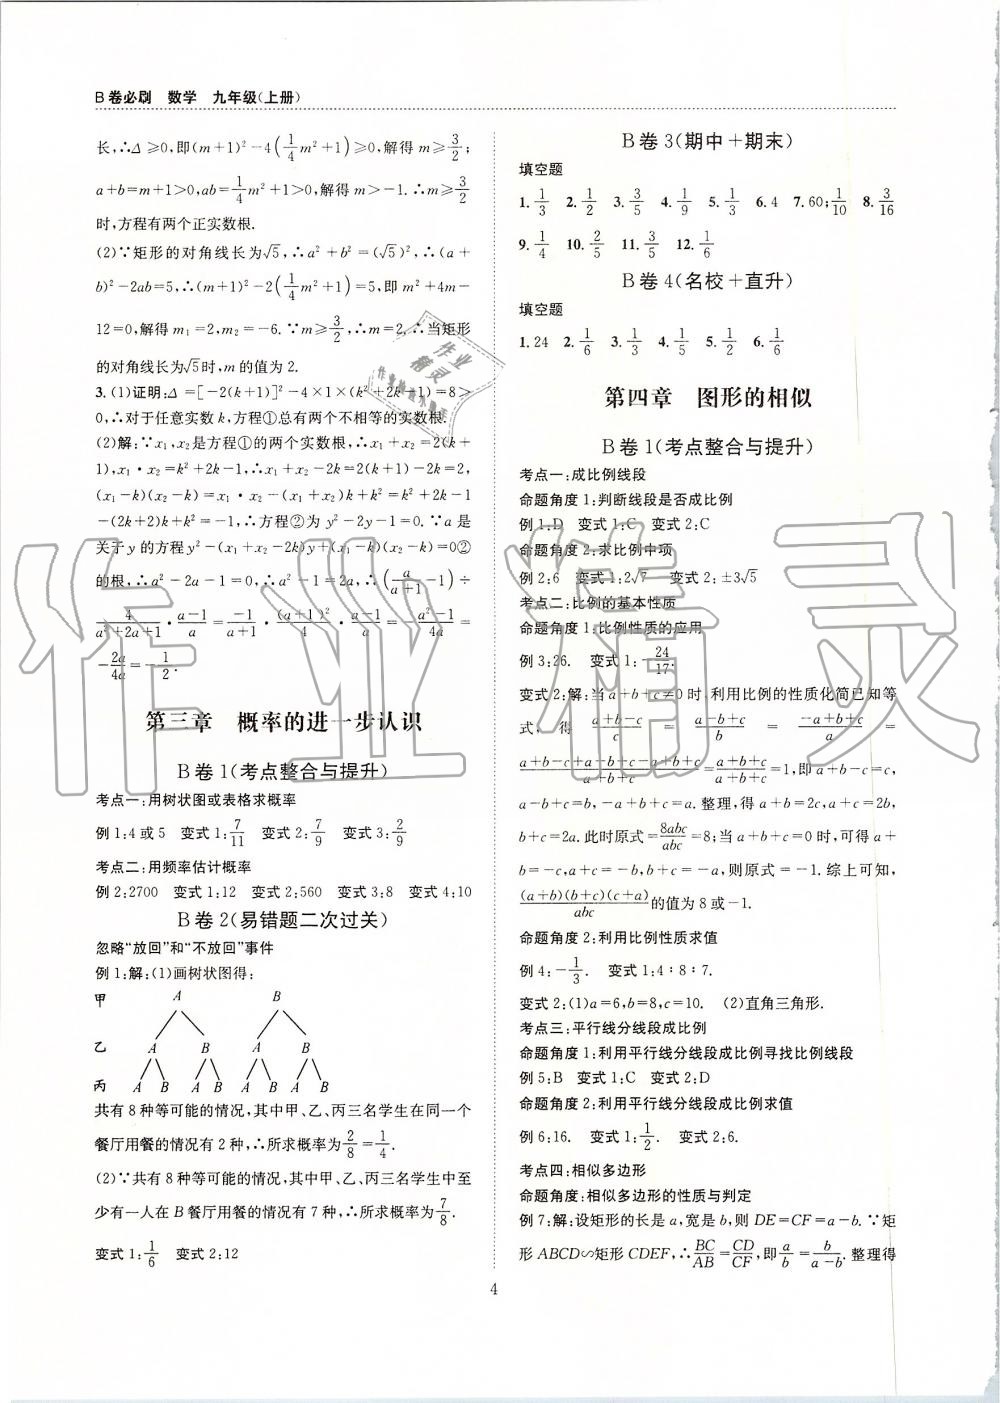 B卷必刷 数学 九年级(上册)
长,∴Δ≥0,即(m+1)²-4(1/4m²+1)≥0,解得m≥3/2;
a+b=m+1>0,ab=1/4m²+1>0,解得m>-1.∴m≥3/2
时,方程有两个正实数根.
(2)∵矩形的对角线长为√5,∴a²+b²=(√5)²,∴(a+
b)²-2ab=5,∴(m+1)²-2(1/4m²+1)=5,即m²+4m-
12=0,解得m₁=2,m₂=-6.∵m≥3/2,∴m=2.∴当矩形
的对角线长为√5时,m的值为2.
3.(1)证明:Δ=[-2(k+1)]²-4×1×(k²+2k-1)=8>
0,∴对于任意实数k,方程①总有两个不相等的实数根.
(2)解:∵x₁,x₂是方程①的两个实数根,∴x₁+x₂=2(k+
1),x₁·x₂=k²+2k-1,∴x₁+x₂-2k=2(k+1)-2k=2,
(x₁-k)(x₂-k)=x₁·x₂-(x₁+x₂)k+k²=k²+2k-1
-(2k+2)k+k²=-1.∴方程②为y²-2y-1=0.∵a是
关于y的方程y²-(x₁+x₂-2k)y+(x₁-k)(x₂-k)=0②
的根,∴a²-2a-1=0,∴a²-1=2a,∴(a/(a+1)-1)÷
4/(a²+2a+1)·(a-1)/a=-1/(a+1)·(a+1)²/4·(a-1)/a=-(a²-1)/4a=
-2a/4a=-1/2.
第三章 概率的进一步认识
B卷1(考点整合与提升)
考点一:用树状图或表格求概率
例1:4或5 变式1:7/11 变式2:7/9 变式3:2/9
考点二:用频率估计概率
例2:2700 变式1:12 变式2:560 变式3:8 变式4:10
B卷2(易错题二次过关)
忽略“放回”和“不放回”事件
例1:解:(1)画树状图得:
甲 A B
乙 A B A B
丙 A B A B A B A B
共有8种等可能的情况,其中甲、乙、丙三名学生在同一个
餐厅用餐的情况有2种,∴所求概率为2/8=1/4.
(2)∵共有8种等可能的情况,其中甲、乙、丙三名学生中至
少有一人在B餐厅用餐的情况有7种,∴所求概率为7/8.
变式1:1/6 变式2:12
B卷3(期中+期末)
填空题
1.1/3 2.1/2 3.3/5 4.1/9 5.1/3 6.4 7.60;1/10 8.3/16
9.1/4 10.2/5 11.3/5 12.1/6
B卷4(名校+直升)
填空题
1.24 2.1/6 3.1/3 4.1/5 5.1/2 6.1/6
第四章 图形的相似
B卷1(考点整合与提升)
考点一:成比例线段
命题角度1:判断线段是否成比例
例1:D 变式1:C 变式2:C
命题角度2:求比例中项
例2:6 变式1:2√7 变式2:±3√5
考点二:比例的基本性质
命题角度1:比例性质的应用
例3:26. 变式1:24/17.
变式2:解:当a+b+c≠0时,利用比例的性质化简已知等
式,得(a+b-c)/c=(a-b+c)/b=(-a+b+c)/a=
(a+b-c+a-b+c-a+b+c)/(a+b+c)=(a+b+c)/(a+b+c)=1,即a+b-c=c,
a-b+c=b,-a+b+c=a.整理,得a+b=2c,a+c=2b,
b+c=2a.此时原式=8abc/abc=8;当a+b+c=0时,可得a+
b=-c,a+c=-b,b+c=-a,则原式=-1.综上可知,
(a+b)(b+c)(c+a)/abc的值为8或-1.
命题角度2:利用比例性质求值
例4:-1/3. 变式1:4∶8∶7.
变式2:(1)a=6,b=8,c=10. (2)直角三角形.
考点三:平行线分线段成比例
命题角度1:利用平行线分线段成比例寻找比例线段
例5:B 变式1:C 变式2:D
命题角度2:利用平行线分线段成比例求值
例6:16. 变式1:1/2. 变式2:6.
考点四:相似多边形
命题角度:相似多边形的性质与判定
例7:解:设矩形的长是a,宽是b,则DE=CF=a-b.∵矩
形ABCD∽矩形CDEF,∴BC/AB=CD/CF,即a/b=b/(a-b).整理得
4
作业精灵
作业精灵